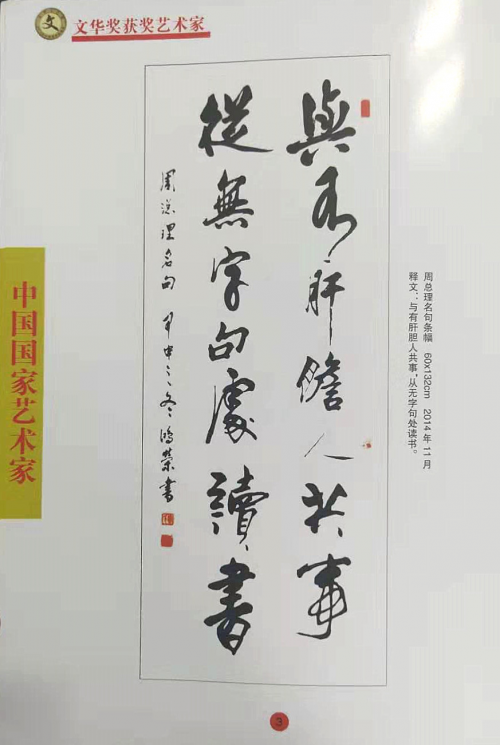 文华奖获奖艺术家
與有肝膽人共事
從無字句處讀書
周總理名句 甲申之冬鴻榮書
周总理名句条幅 60x132cm 2014年11月
释文：与有肝胆人共事，从无字句处读书。
中国国家艺术家
3